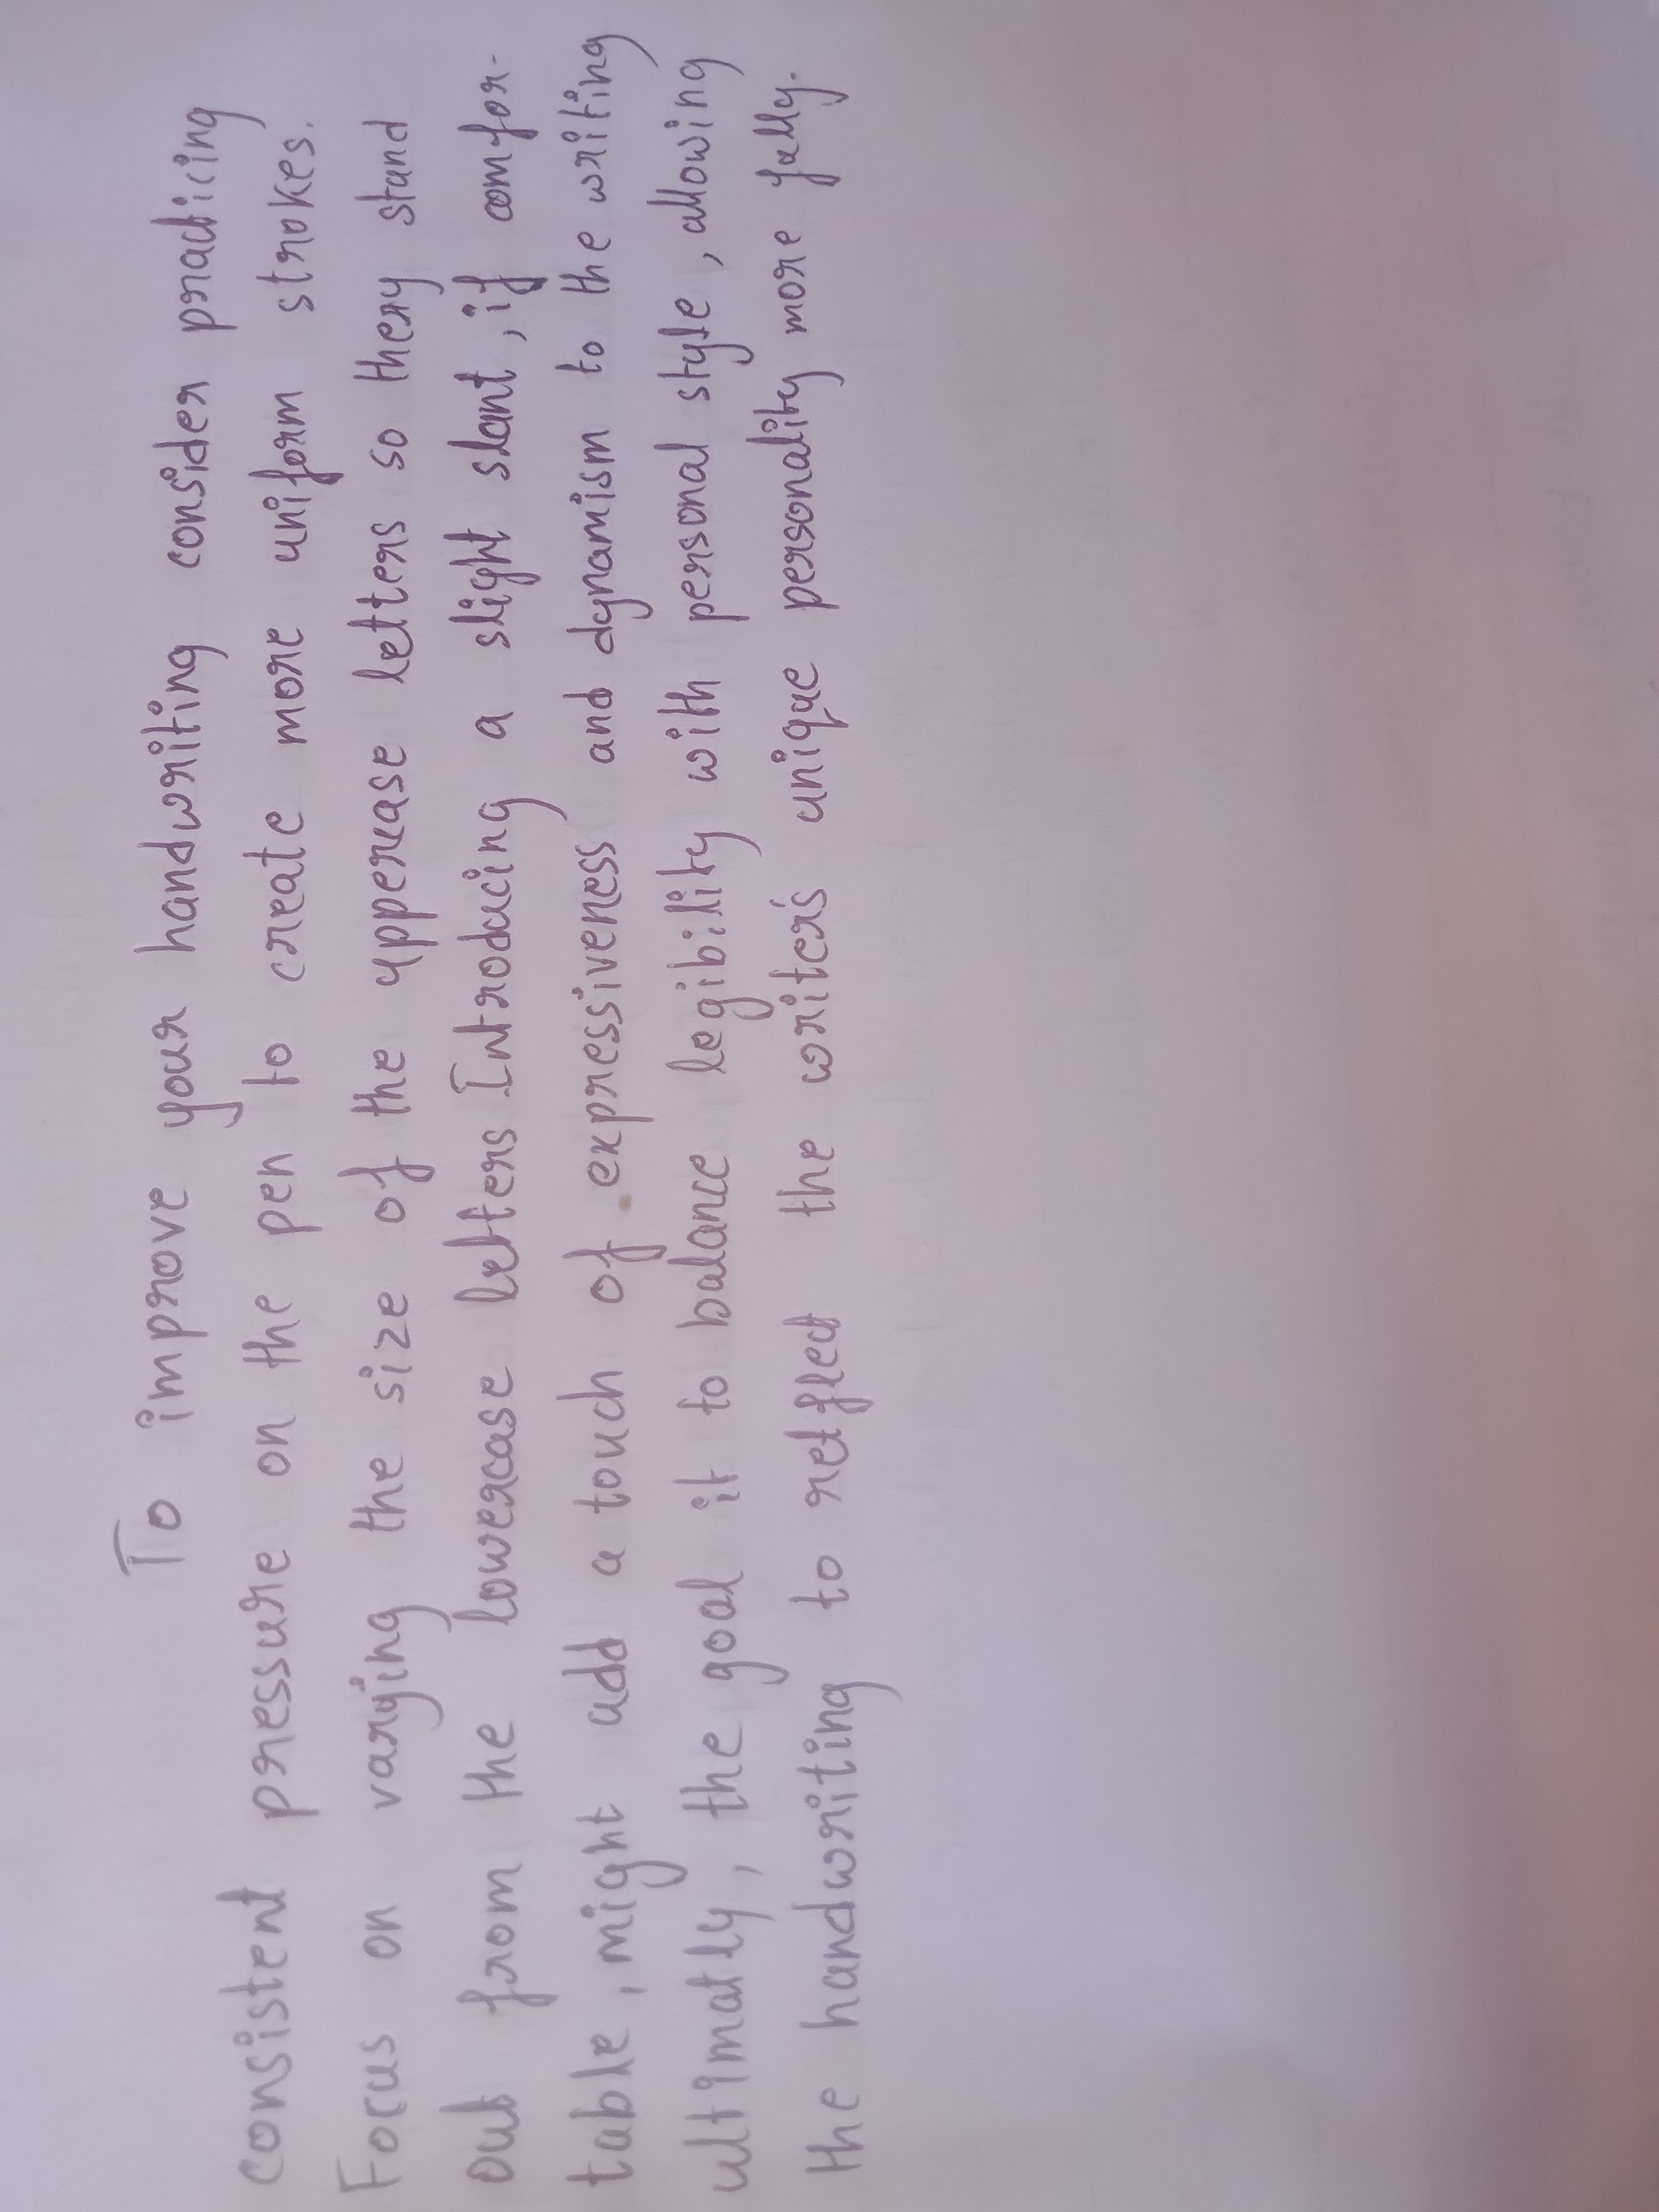 To improve your handwriting consider practicing
consistent pressure on the pen to create more uniform strokes.
Focus on varying the size of the upperase letters so they stand
out from the lowercase letters Introducing a slight slant, if comfor-
table, might add a touch of expressiveness and dynamism to the writing
ultimatly, the goal it to balance legibility with personal style, allowing
the handwriting to reflect the writer's unique personality more fully.